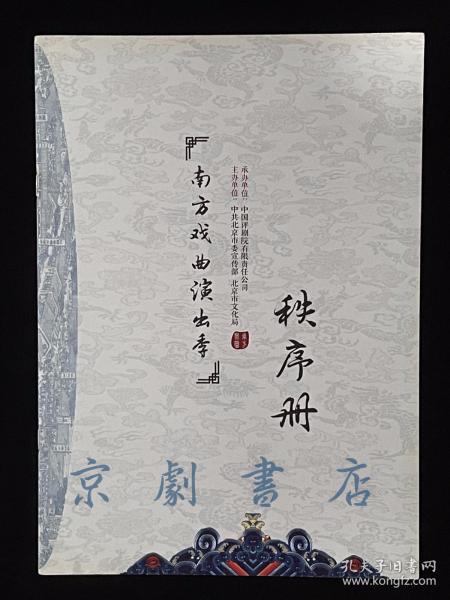 南方戏曲演出季
主办单位：中共北京市委宣传部 北京市文化局
承办单位：中国评剧院有限责任公司
秩序册
京劇書店
孔夫子旧书网
www.kongfz.com